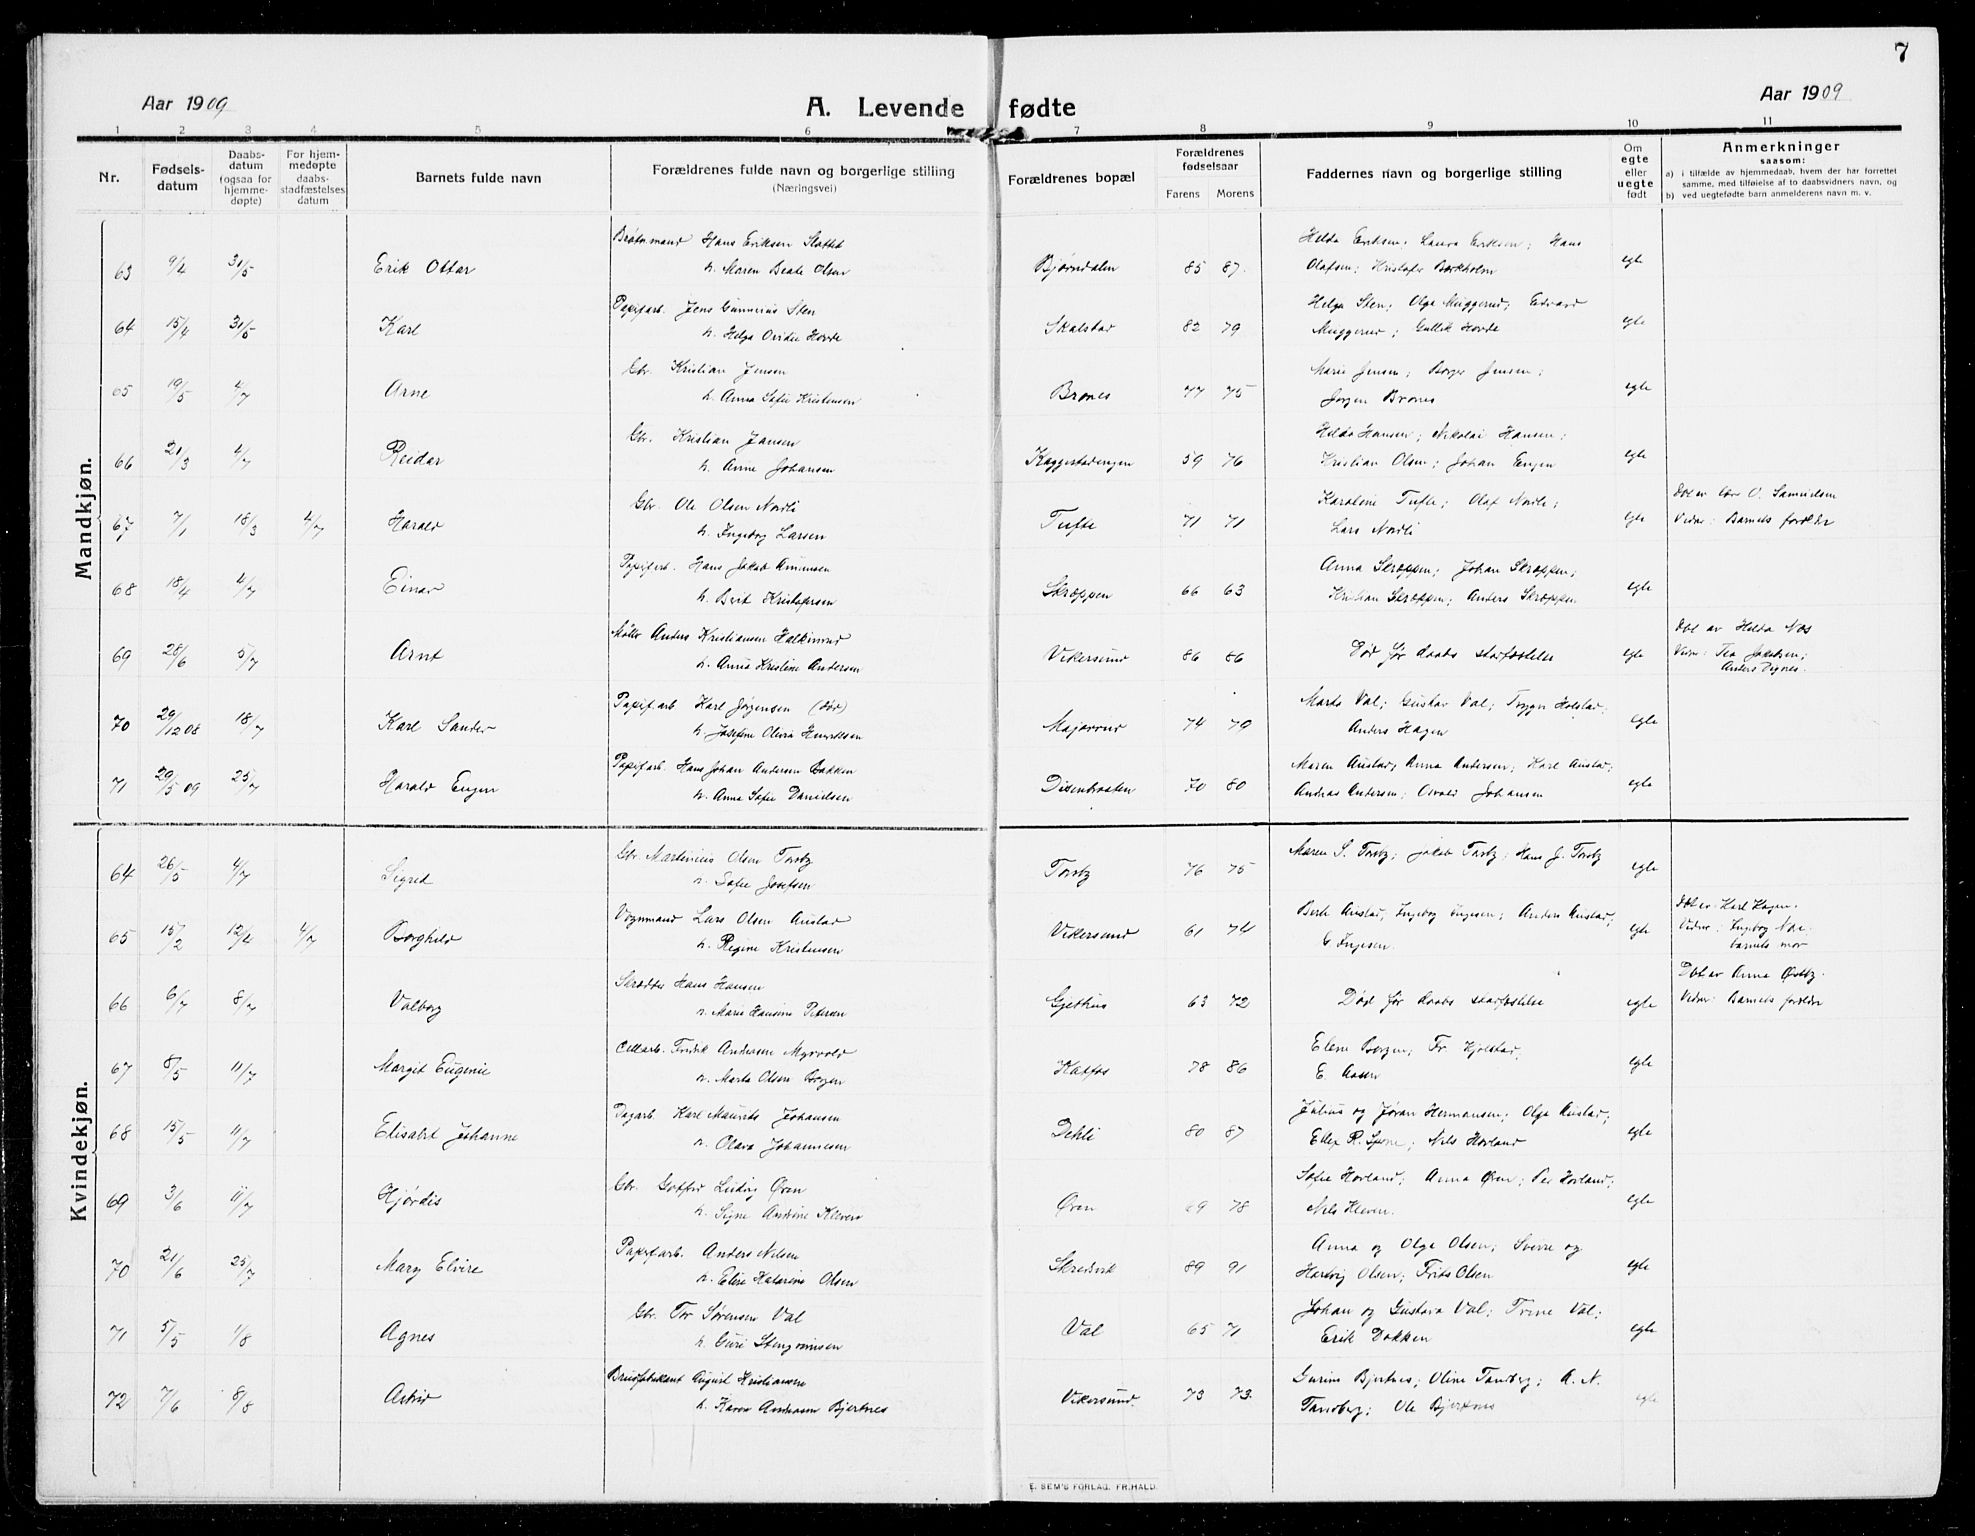 7
Aar 1909
A. Levende fødte
Aar 1909
1 2 3 4 5 6 7 8 9 10 11
Nr.
Fødsels-
datum
Daabs-
datum
(ogsaa for
hjemme-
døpte)
For hjem-
medøpte
daabs-
stadfæstelses
datum
Barnets fulde navn
Forældrenes fulde navn og borgerlige stilling
(Næringsvei)
Forældrenes bopæl
Forældrenes
fødselsaar
Farens Morens
Faddernes navn og borgerlige stilling
Om
egte
eller
uegte
født
Anmerkninger
saasom:
a) i tilfælde av hjemmedaab, hvem der har forrettet
samme, med tilføielse af to daabsvidners navn, og
b) ved uegtefødte barn anmelderens navn m. v.
Mandkjøn.
Hans Eriksen Slottet Helda Eriksen; Laura Eriksen; Hans
63 9/4 31/5 Erik Ottar h. Maren Beate Olsen Bjørndalen 85 87. Olafsen; Kristofer Borkholm egte
Papirfarb. Jens Gunerius Sten Helga Sten; Olga Muggerud; Edvard
64 15/4 31/5 Karl h. Helga Hovde Skalstad 82 79 Muggerud; Gullik Hovde egte
Gbr. Kristian Jensen Marie Jensen; Borger Jensen;
65 19/5 4/7 Arne h. Anna Sofie Kristensen Brones 77 75 Jørgen Brones egte
Gbr. Kristian Jansen Helda Hansen; Nikolai Hansen;
66 21/3 4/7 Reidar h. Anne Johansen Kaggestadengen 59 76 Kristian Olsen; Johan Engen egte
Gbr. Ole Olsen Nordli Karoline Tufte; Olaf Nordli; Døbt av lær O. Samuelsen
67 7/1 18/3 4/7 Harald h. Ingeborg Larsen Tufte 71 71 Lars Nordli egte Vidner: Barnets forældre
Papirfarb. Hans Jakob Amundsen Anna Skræppen; Johan Skræppen;
68 18/4 4/7 Einar h. Berit Kristofersen Skræppen 66 63 Kristian Skræppen; Anders Skræppen. egte
Møller Anders Kristiansen Døbt av Helda Næs
69 28/6 5/7 Arnt h. Anna Kristine Andersen Vikersund 86 86 Død før daabs stadfæstelse egte Vidner: Tea Jakobsen;
Anders Dignes.
Papirf. arb Karl Jørgensen (død) Marta Val; Gustav Val; Trygve Holstad;
70 29/12 08 18/7 Karl Sander h. Josefine Olivia Henriksen Majorrud 74 79 Anders Hagen egte
Papirf arb. Hans Johan Andersen Bakken Maren Austad; Anna Andersen; Karl Austad;
71 29/5 09 25/7 Harald Eugen h. Anna Sofie Danielsen Dixenbraaten 70 80 Andreas Andersen; Osvald Johansen egte
Kvindekjøn.
Gbr. Martinius Olsen Torsby Maren S. Torsby; Jakob Torsby; Hans J. Torsby
64 26/5 4/7 Sigred h. Sofie Josefsen Torsby 76 75 egte
Vognmand Lars Olsen Austad Berte Austad; Ingeborg Ingesen; Anders Austad; Døbt av Karl Hagen.
65 15/2 12/4 4/7 Borghild h. Regine Kristensen Vikersund 61 74 E. Ingesen. egte Vidner: Ingeborg Næs.
barnets mor
Skrædder Hans Hansen Døbt av Anna Østby.
66 6/7 8/7 Valborg h. Marie Hansine Petersen Gjethus 63 72 Død før daabs stadfæstelse egte Vidner: Barnets forældre
Cell.arb. Fredrik Andersen Myrvold Elene Borgen; Fr. Kjølstad,
67 8/5 11/7 Margit Eugenie h. Marta Olsen Borgen Katfos 78 86 E. Aasen egte
Dagarb. Karl Maurits Johansen Julius og Jøran Hermansen; Olga Austad;
68 15/5 11/7 Elisabet Johanne h. Olava Johannesen Dehli 80 87 Nils Hovland egte
Gbr. Gotfred Ludvig Øren Sofie Hovland; Anna Øren; Per Hovland;
69 3/6 11/7 Hjørdis h. Signe Kleven Øren 69 78 Nils Kleven. egte
Papirf arb. Anders Nilsen Anna og Olga Olsen; Sverre og
70 21/6 25/7 Mary Elvire h. Elise Katarine Olsen Skredsvik 89 91 Hartvig Olsen; Frits Olsen egte
Gbr. Tor Sørensen Val Johan og Gustava Val; Trine Val;
71 5/5 1/8 Agnes h. Guri Stengrimsen Val 65 71 Erik Dokken egte
Brusfabrikant August Kristiansen Gurine Bjertnes; Oline Tandberg; A. N.
72 7/6 8/8 Astrid h. Karen Andersen Bjertnes Vikersund. 73 73. Tandberg; Ole Bjertnes egte
E. SEM'S FORLAG, FR.HALD.